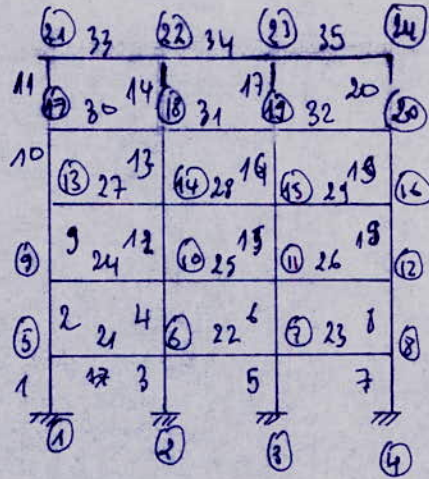 21 33 22 34 23 35 24
11 17 30 14 18 31 17 19 32 20 20
10 13 27 13 14 28 16 15 29 19 16
9 9 24 12 10 25 15 11 26 18 12
5 2 21 4 6 22 6 7 23 8 8
1 3 5 7
1 2 3 4